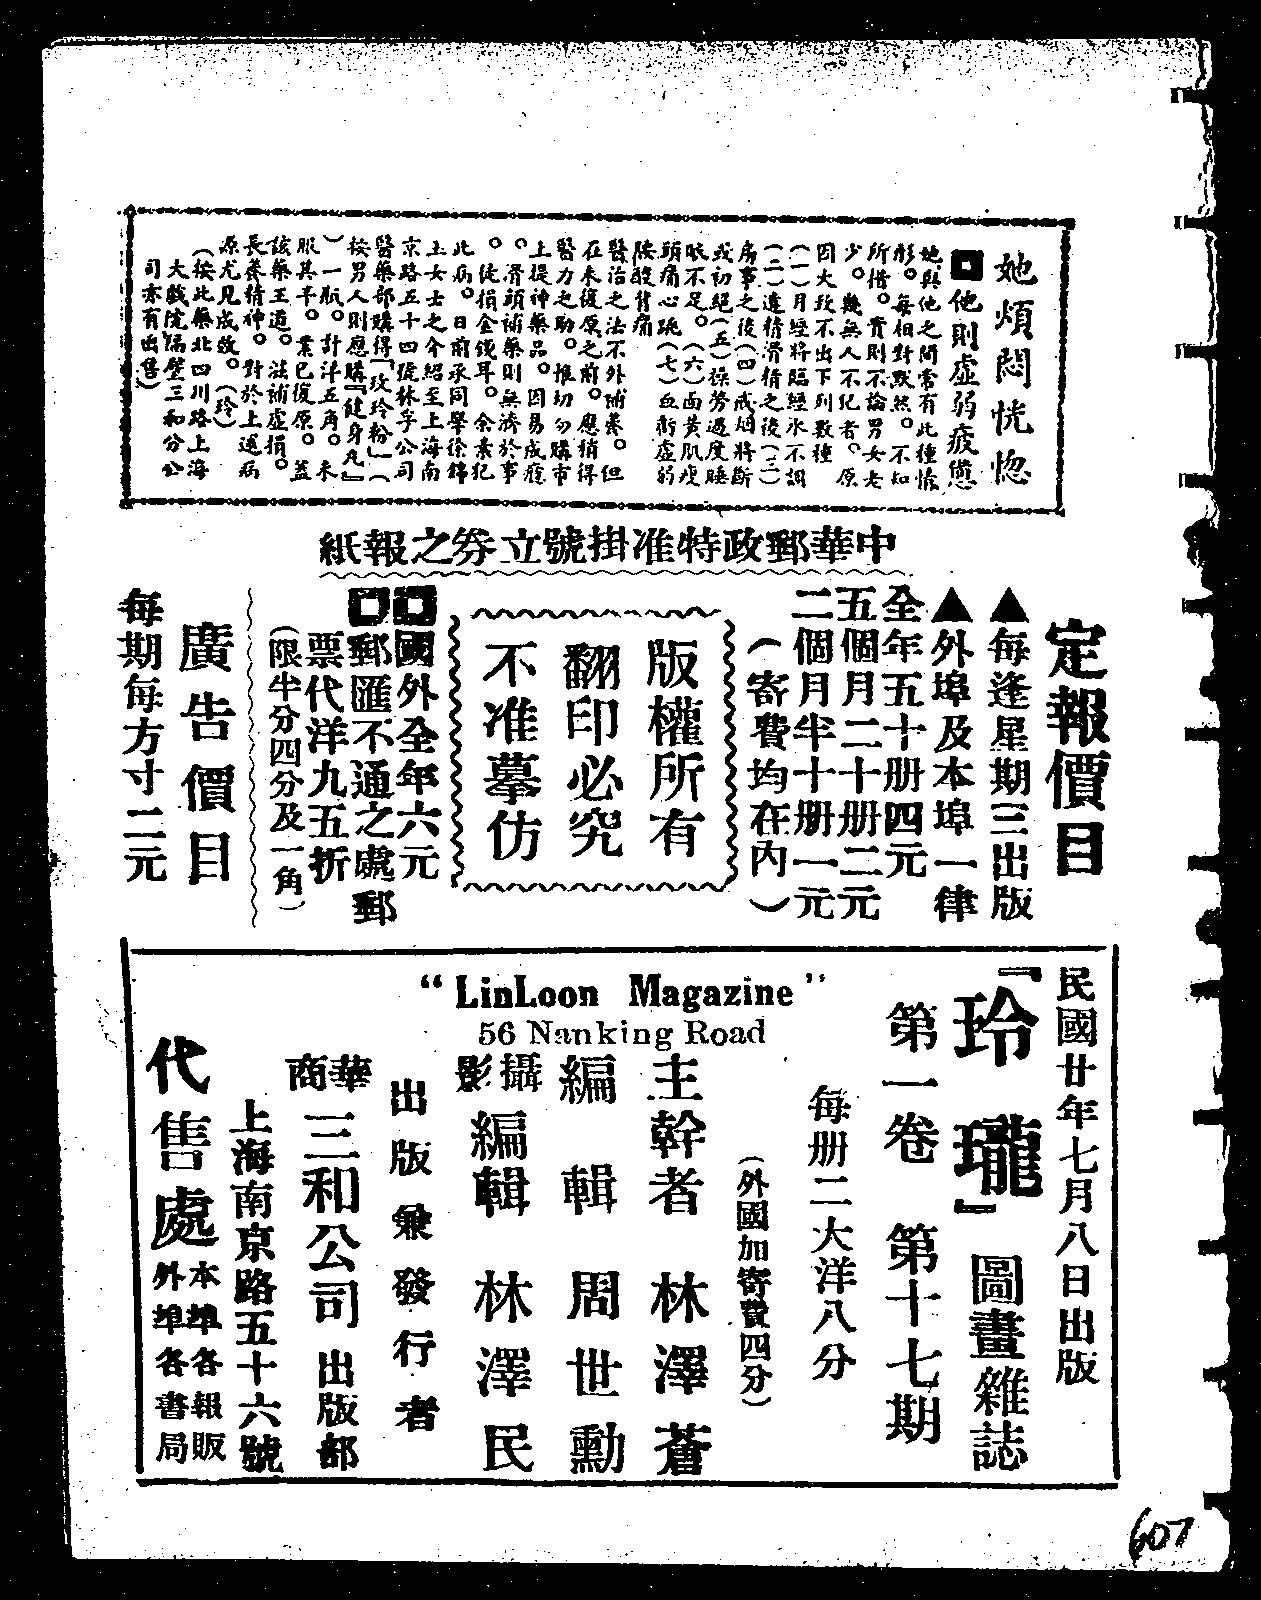 她煩悶恍惚
他則虛弱疲憊
她與他之間常有此種情
形。每相對默然。不知
所措。實則不論男女老
少。幾無人不犯者。原
因大致不出下列數種
(一)月經將臨經水不調
(二)遺精滑精之後(三)
房事之後(四)戒烟將斷
或初絕(五)操勞過度睡
眠不足。(六)面黃肌瘦
頭痛心跳(七)血虧虛弱
腰酸背痛
醫治之法不外補養。但
在未復原之前。應稍得
醫力之助。惟切勿購市
上提神藥品。因易成癮
。滑頭補藥則無濟於事
。徒損金錢耳。余素犯
此病。日前承同學徐錦
玉女士之介紹至上海南
京路五十四號林孚公司
醫藥部購得『玫玲粉』(
按男人則應購『健身丸』
)一瓶。計洋五角。未
服其半。業已復原。蓋
該藥王道。滋補虛損。
長養精神。對於上述病
原尤見成效。(玲)
(按此藥北四川路上海
大戲院隔壁三和分公
司亦有出售)
中華郵政特准掛號立券之報紙
定報價目
▲每逢星期三出版
▲外埠及本埠一律
全年五十册四元
五個月二十册二元
二個月半十册一元
(寄費均在內)
版權所有
翻印必究
不准摹仿
國外全年六元
郵匯不通之處郵
票代洋九五折
(限半分四分及一角)
廣告價目
每期每方寸二元
民國廿年七月八日出版
『玲瓏』圖畫雜誌
第一卷 第十七期
每册二大洋八分
(外國加寄費四分)
“LinLoon Magazine”
56 Nanking Road
主幹者 林澤蒼
編輯 周世勳
攝影編輯 林澤民
出版兼發行者
華商三和公司出版部
上海南京路五十六號
代售處
本埠各報販
外埠各書局
607